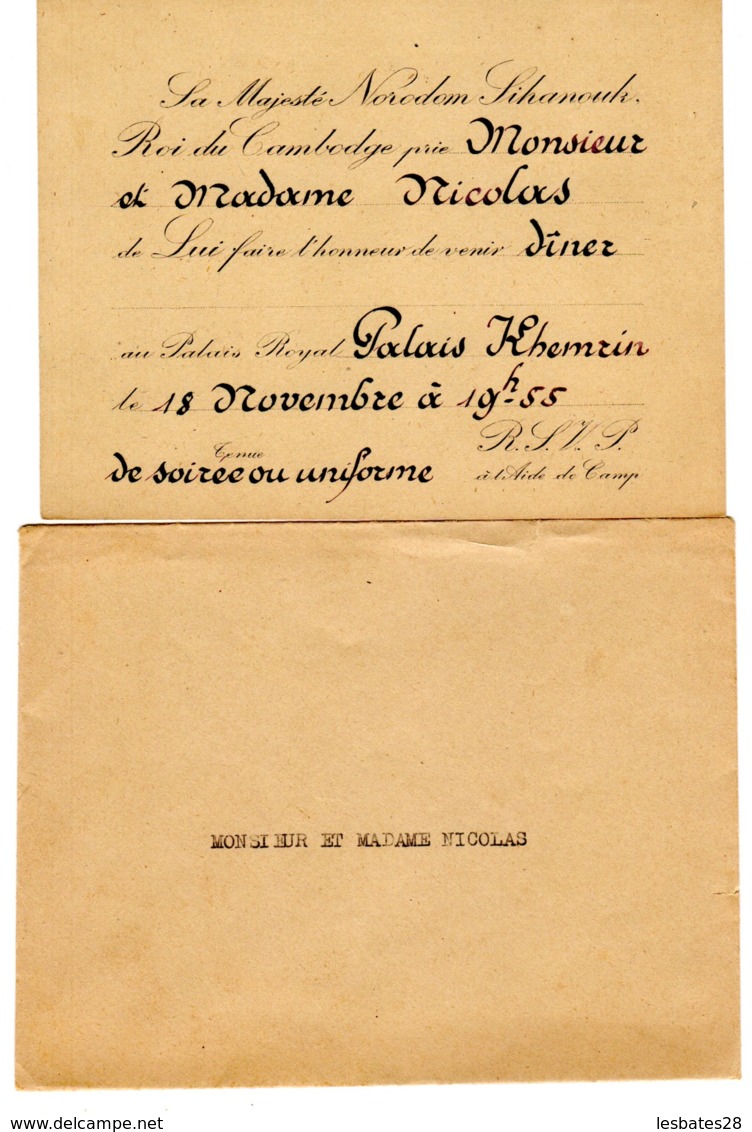 Sa Majesté Norodom Sihanouk.
Roi du Cambodge prie Monsieur
et Madame Nicolas
de Lui faire l'honneur de venir dîner
au Palais Royal Palais Khemrin
le 18 Novembre à 19h-55
Tenue
de soirée ou uniforme
R.S.V.P.
à l'Aide de Camp
MONSIEUR ET MADAME NICOLAS
www.delcampe.net
lesbates28